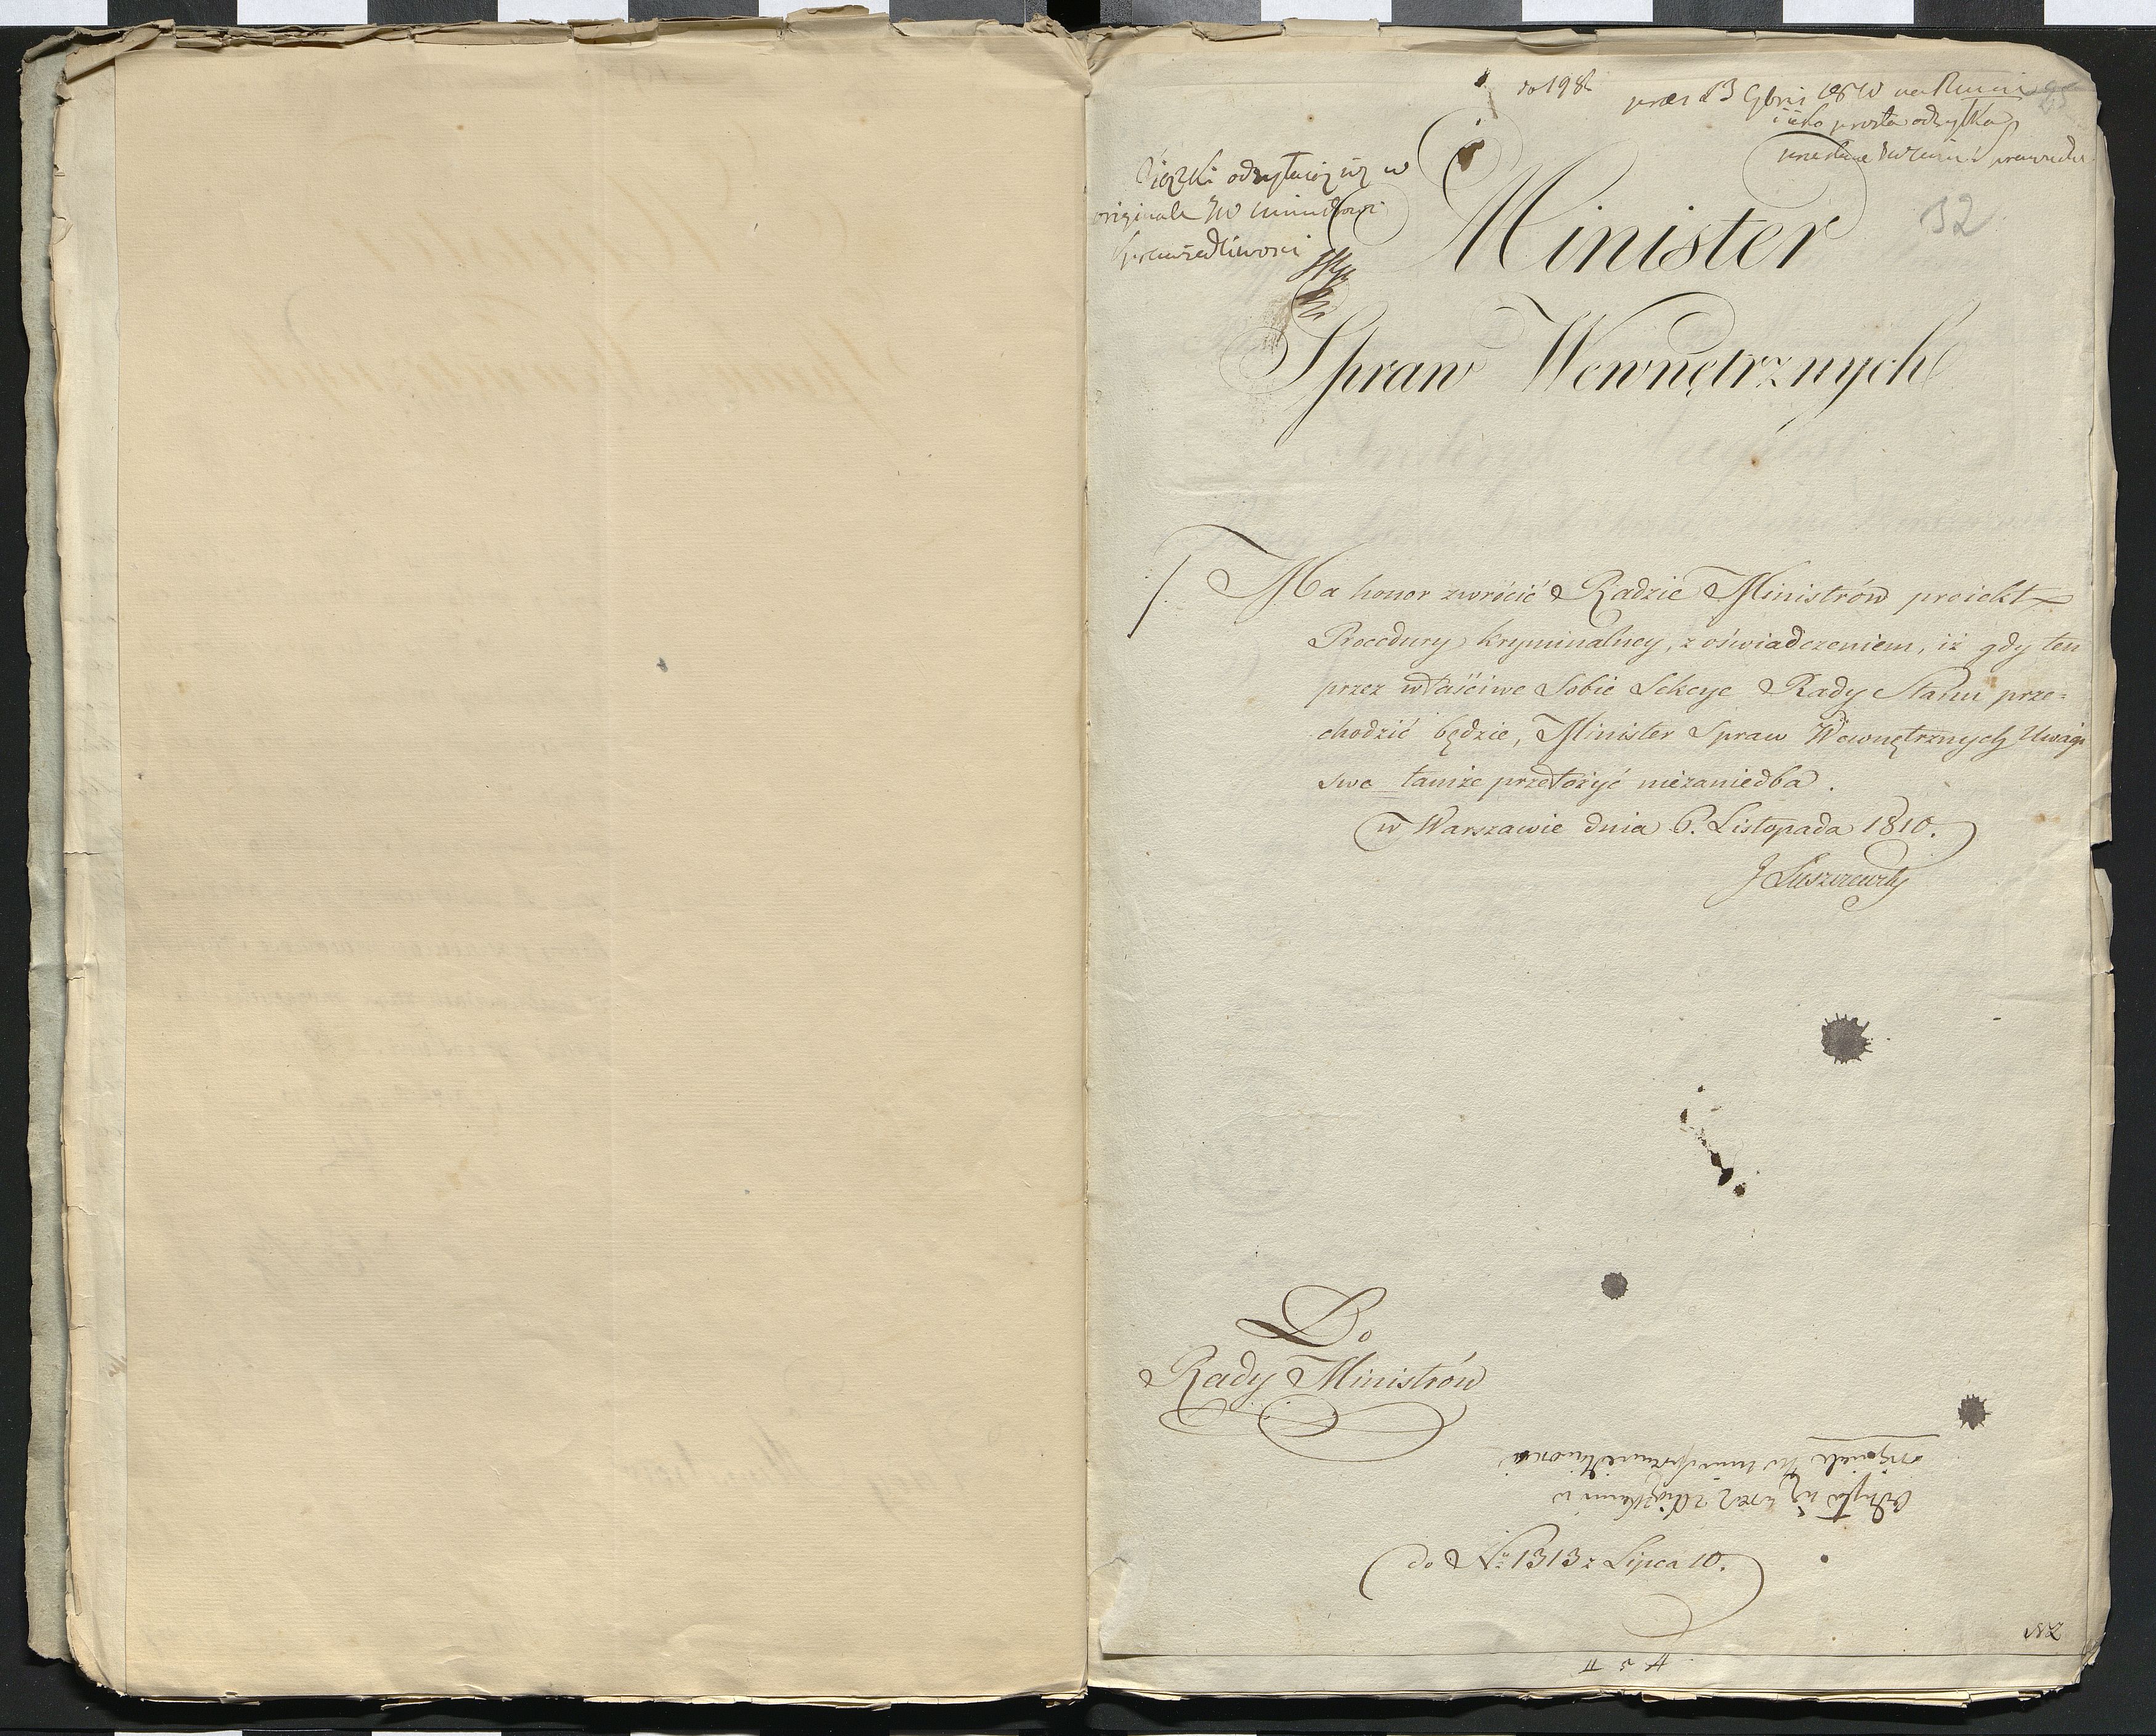 do 198
32
Książki odsyłaią się w
originale JW Ministrowi
Sprawiedliwości
Minister
Spraw Wewnętrznych
Ma honor zwrócić Radzie Ministrów proiekt
Procedury kryminalney, z oświadczeniem, iż gdy ten
przez właściwe Sobie Sekcye Rady Stanu prze=
chodzić będzie, Minister Spraw Wewnętrznych Uwagi
swe tamże przełożyć niezaniedba.
w Warszawie dnia 6. Listopada 1810.
J Łuszczewski
Do
Rady Ministrów
Odsyła się wraz z Książkami w
originale
do Nr 1313 z Lipca 10.